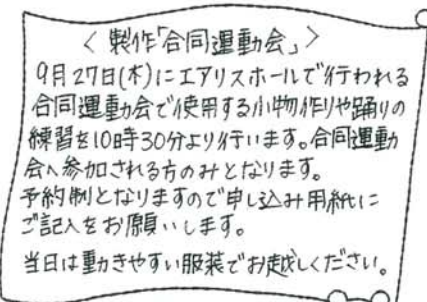 〈製作「合同運動会」〉
9月27日(木)にエアリスホールで行われる
合同運動会で使用する小物作りや踊りの
練習を10時30分より行います。合同運動
会へ参加される方のみとなります。
予約制となりますので申し込み用紙に
ご記入をお願いします。
当日は動きやすい服装でお越しください。